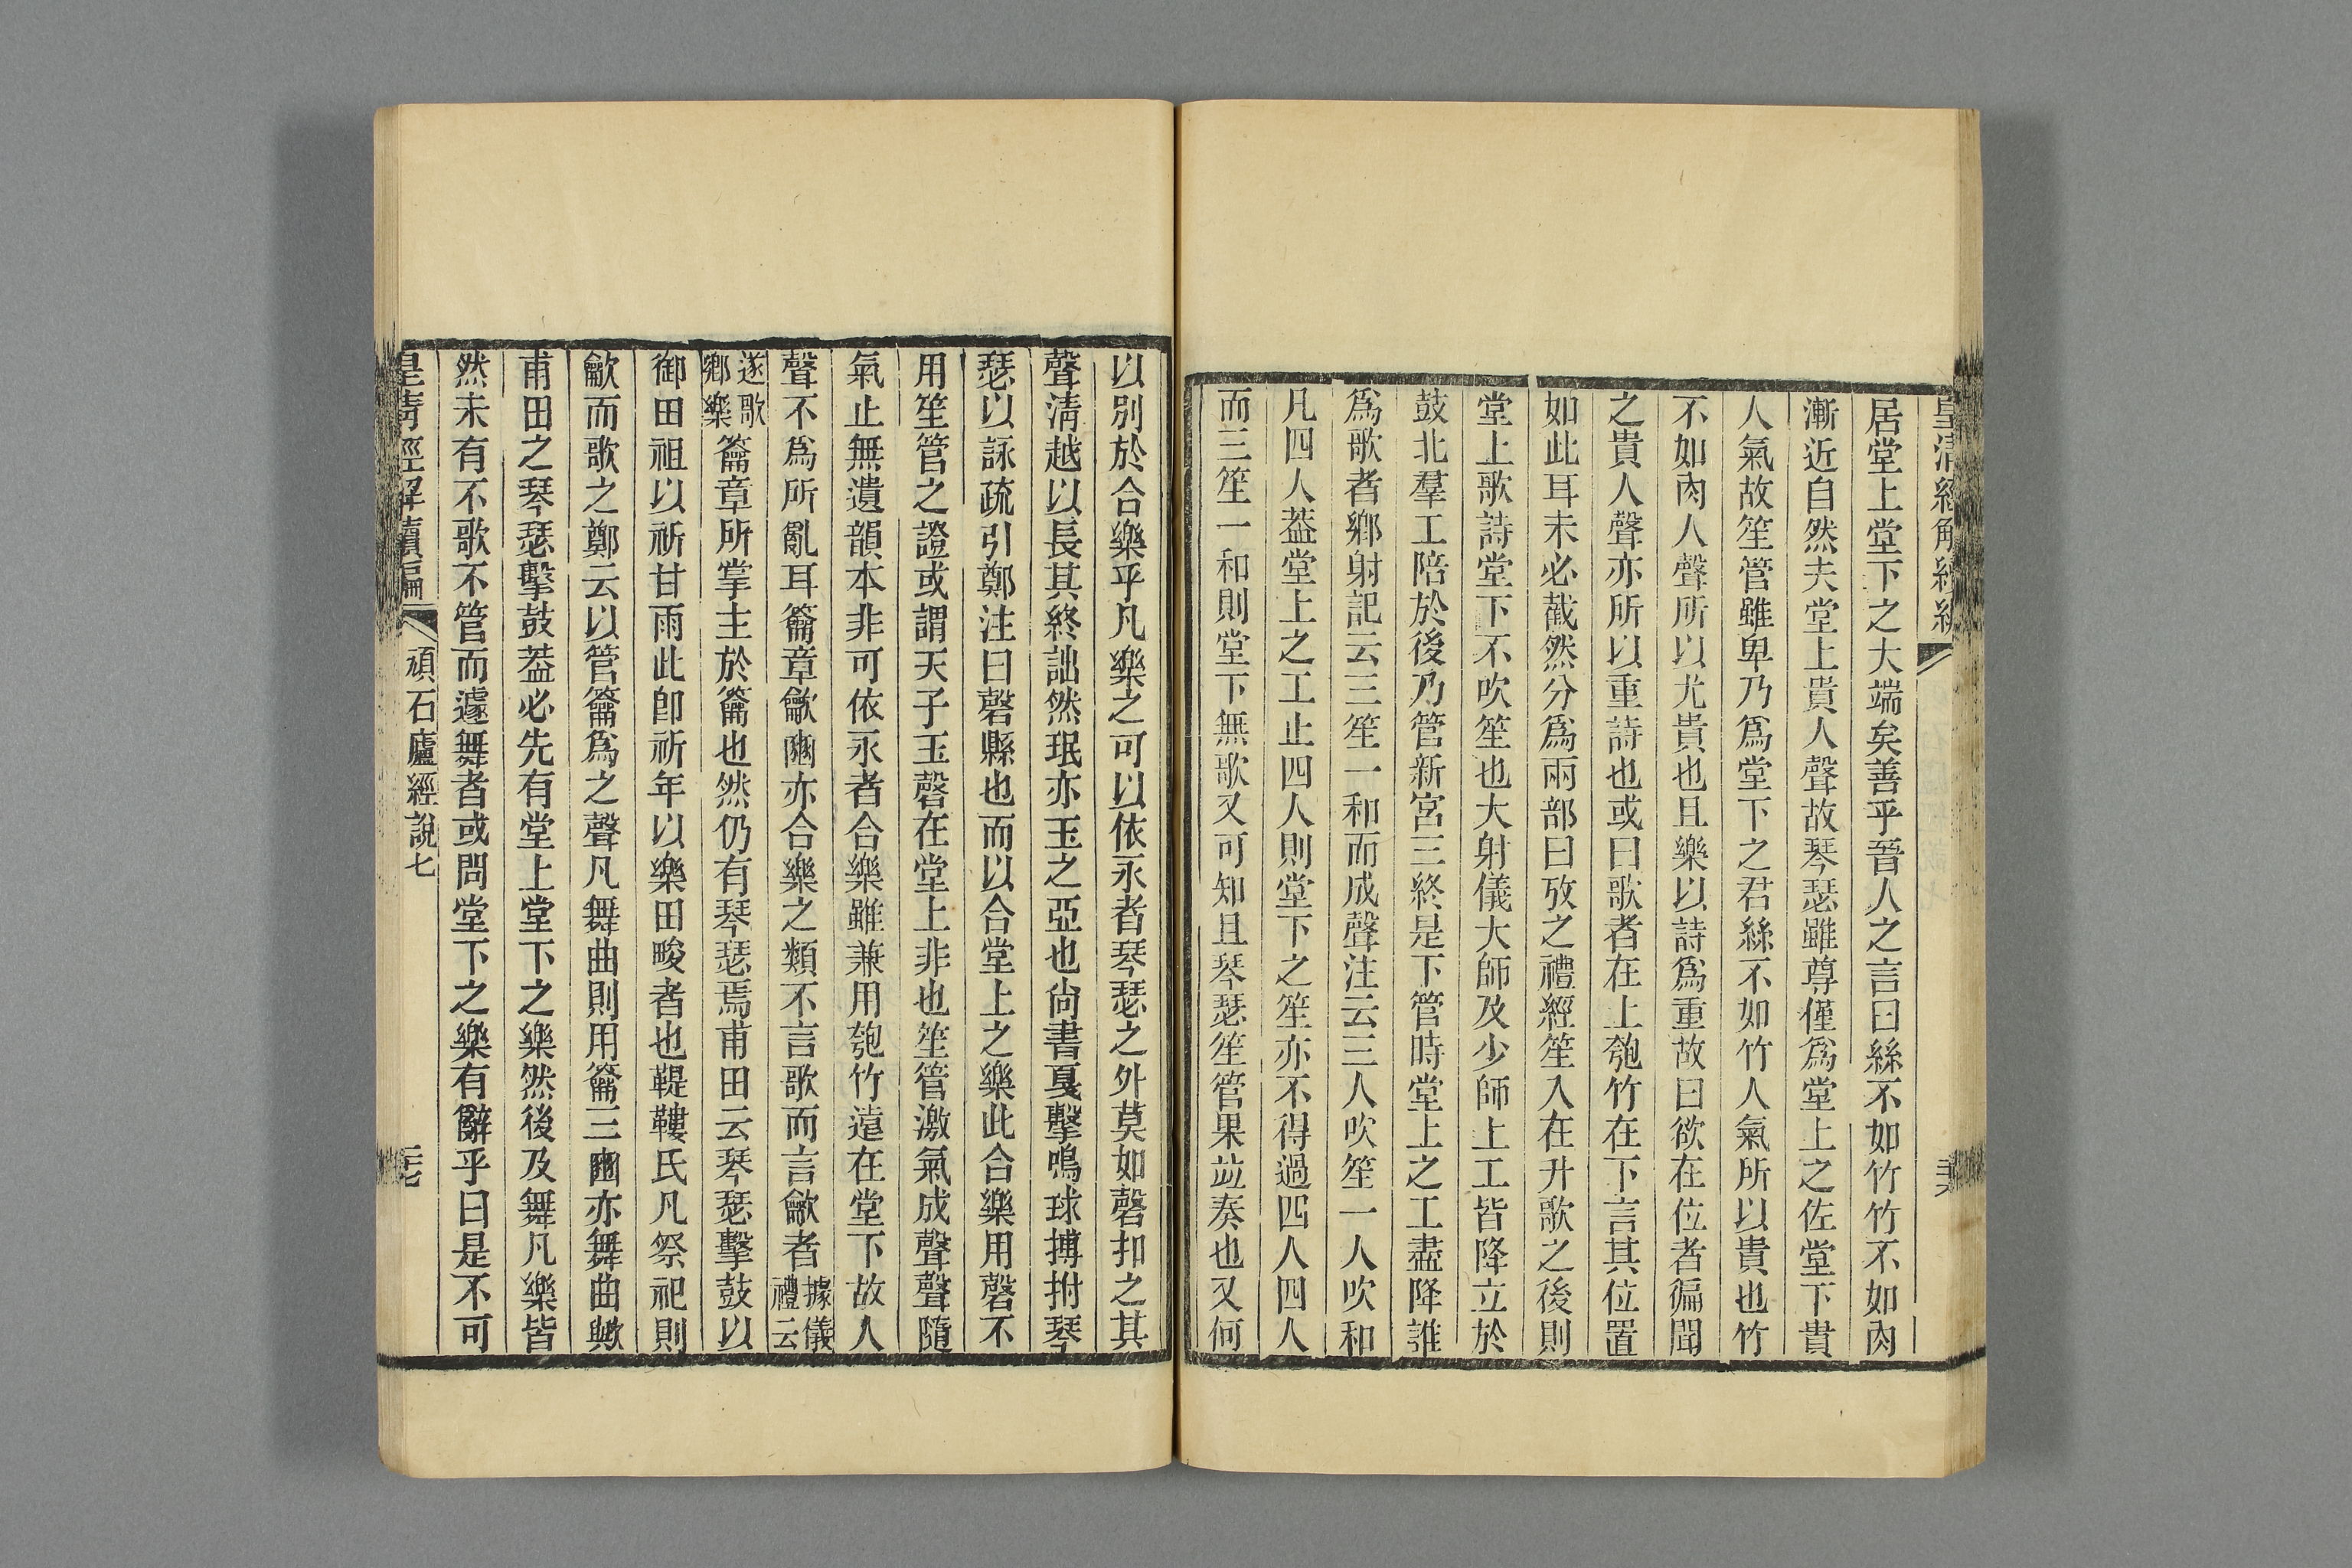 皇清經解續編
居堂上堂下之大端矣善乎晉人之言曰絲不如竹竹不如肉
漸近自然夫堂上貴人聲故琴瑟雖尊僅爲堂上之佐堂下貴
人氣故笙管雖卑乃爲堂下之君絲不如竹人氣所以貴也竹
不如肉人聲所以尤貴也且樂以詩爲重故曰欲在位者徧聞
之貴人聲亦所以重詩也或曰歌者在上匏竹在下言其位置
如此耳未必截然分爲兩部曰攷之禮經笙入在升歌之後則
堂上歌詩堂下不吹笙也大射儀大師及少師上工皆降立於
鼓北羣工陪於後乃管新宮三終是下管時堂上之工盡降誰
爲歌者鄉射記云三笙一和而成聲注云三人吹笙一人吹和
凡四人葢堂上之工止四人則堂下之笙亦不得過四人四人
而三笙一和則堂下無歌又可知且琴瑟笙管果竝奏也又何
以別於合樂乎凡樂之可以依永者琴瑟之外莫如磬扣之其
聲淸越以長其終詘然珉亦玉之亞也尙書戛擊鳴球搏拊琴
瑟以詠疏引鄭注曰磬縣也而以合堂上之樂此合樂用磬不
用笙管之證或謂天子玉磬在堂上非也笙管激氣成聲聲隨
氣止無遺韻本非可依永者合樂雖兼用匏竹遠在堂下故人
聲不爲所亂耳籥章龡豳亦合樂之類不言歌而言龡者據儀禮云
遂歌鄉樂籥章所掌主於籥也然仍有琴瑟焉甫田云琴瑟擊鼓以
御田祖以祈甘雨此卽祈年以樂田畯者也鞮鞻氏凡祭祀則
龡而歌之鄭云以管籥爲之聲凡舞曲則用籥三豳亦舞曲歟
甫田之琴瑟擊鼓葢必先有堂上堂下之樂然後及舞凡樂皆
然未有不歌不管而遽舞者或問堂下之樂有辭乎曰是不可
皇淸經解續編 頑石廬經說七